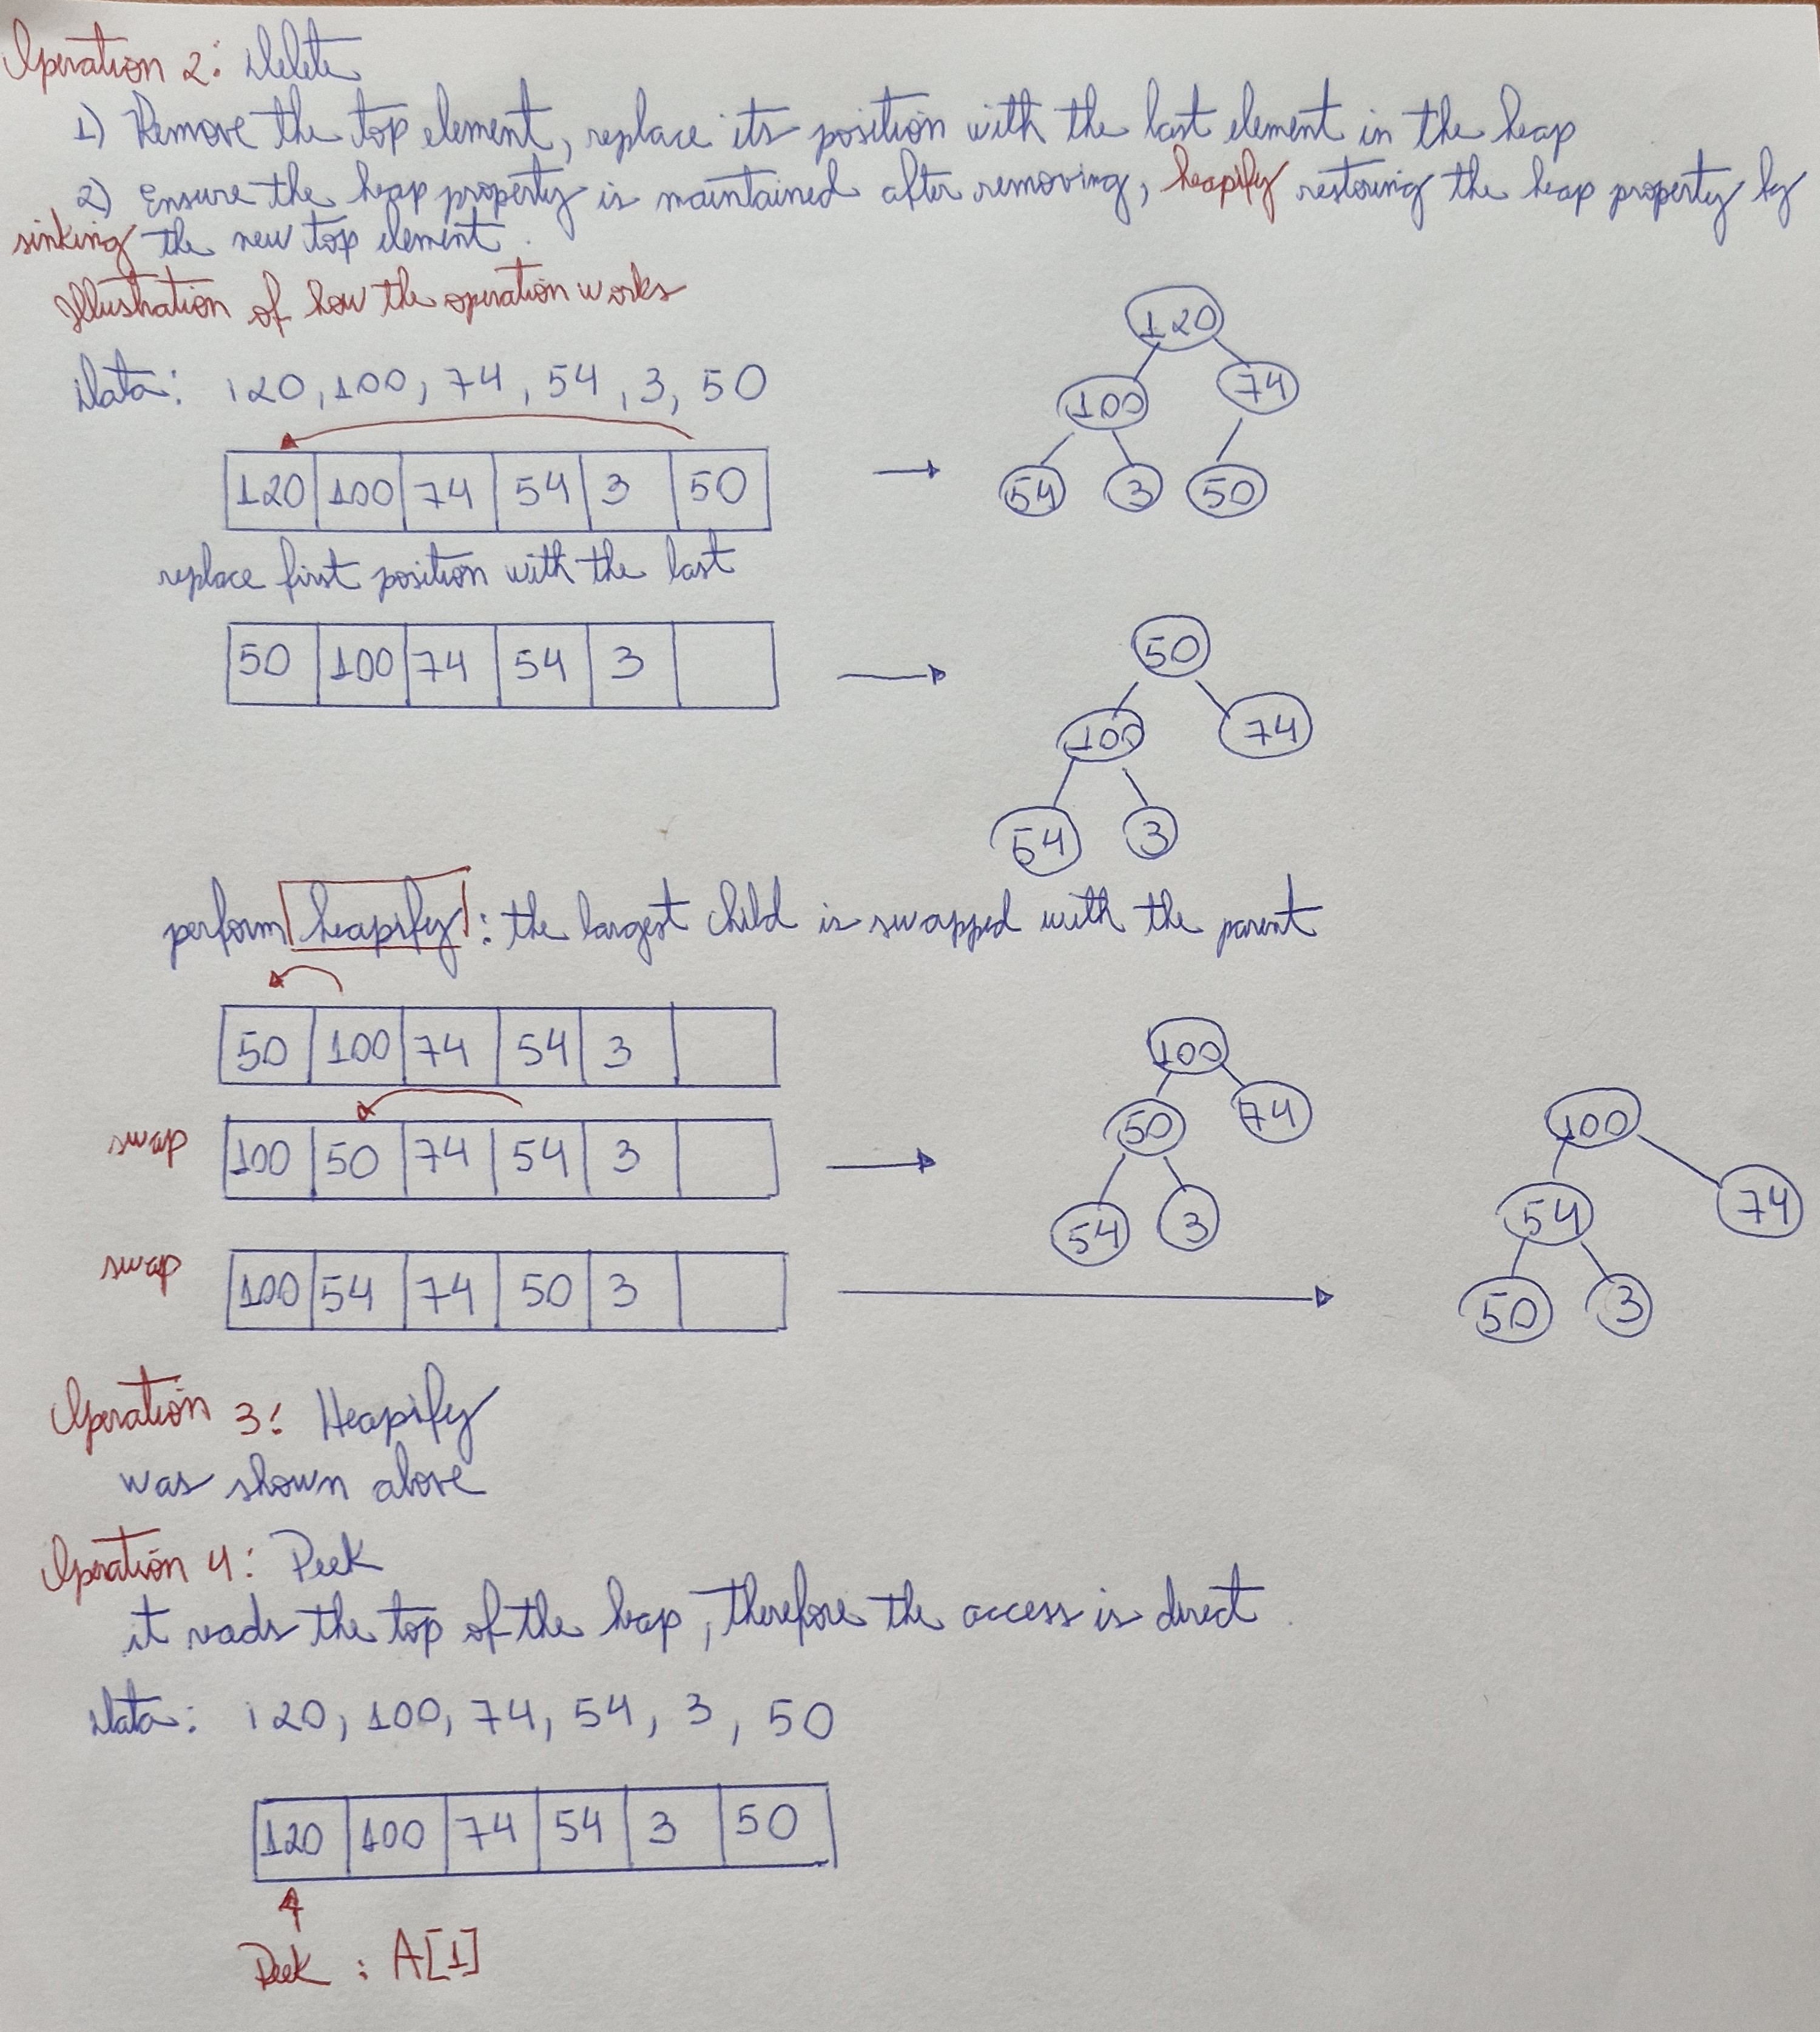 Operation 2: Delete
1) Remove the top element, replace its position with the last element in the heap
2) Ensure the heap property is maintained after removing, heapify restoring the heap property by
sinking the new top element.
Illustration of how the operation works
Data: 120, 100, 74, 54, 3, 50
120 100 74 54 3 50
120
100 74
54 3 50
replace first position with the last
50 100 74 54 3
50
100 74
54 3
perform heapify: the largest child is swapped with the parent
50 100 74 54 3
swap 100 50 74 54 3
100
50 74
54 3
swap 100 54 74 50 3
100
54 74
50 3
Operation 3: Heapify
was shown above
Operation 4: Peek
it reads the top of the heap, therefore the access is direct.
Data: 120, 100, 74, 54, 3, 50
120 100 74 54 3 50
Peek : A[1]